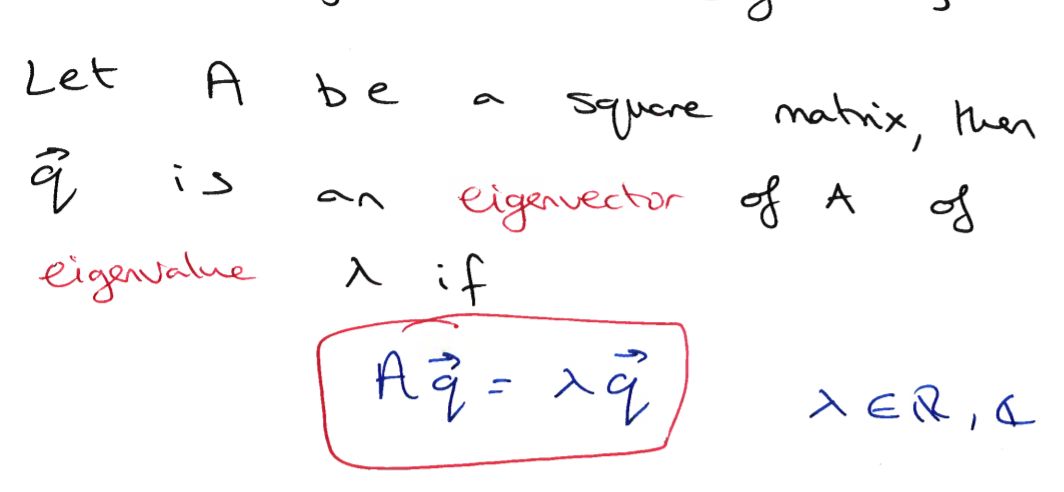 Let A be a square matrix, then
q⃗ is an eigenvector of A of
eigenvalue λ if
Aq⃗ = λq⃗ λ∈ℝ, ℂ